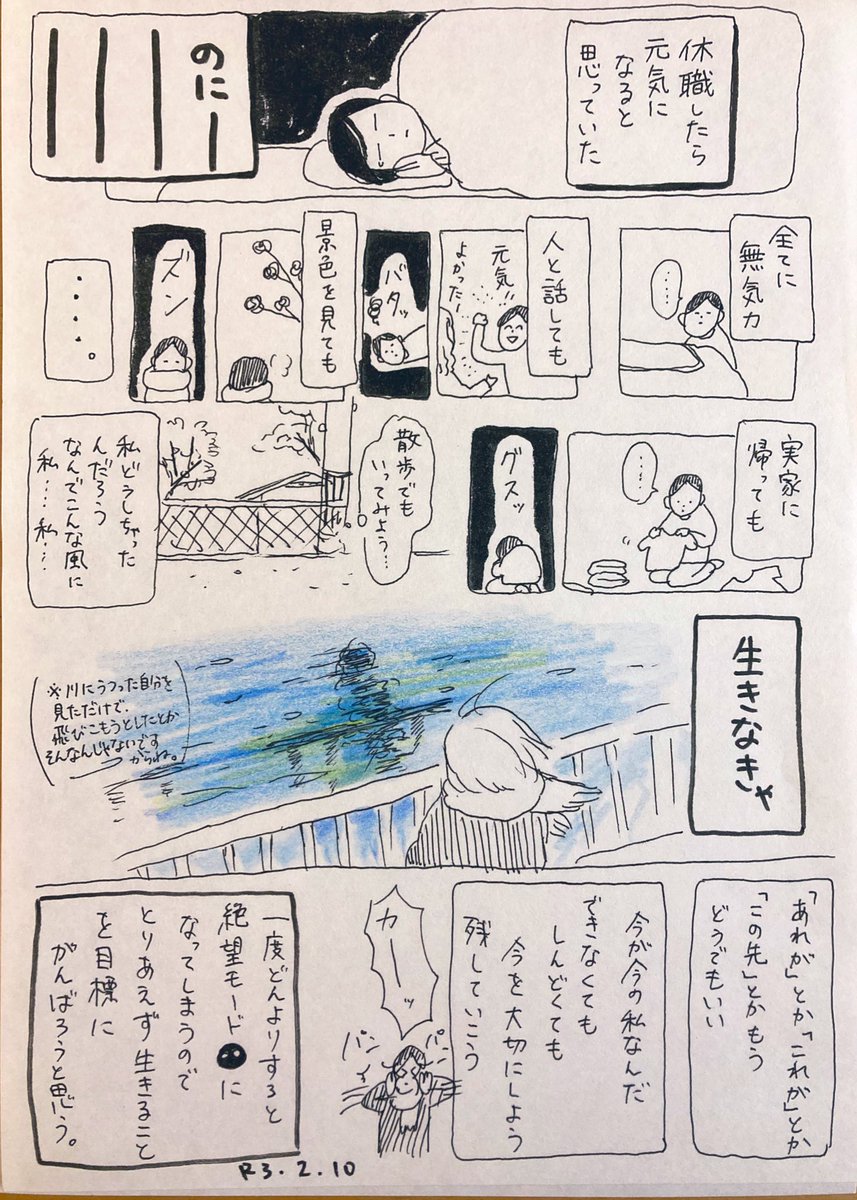 休職したら
元気に
なると
思っていた
のにーーーー
全てに
無気力
……
人と話しても
元気!
よかったー
バタッ
景色を見ても
ズン
・・・・。
実家に
帰っても
……
グスッ
散歩でも
いってみよう…
私どうしちゃった
んだろう
なんでこんな風に
私…私…
生きなきゃ
(※川にうつった自分を
見ただけで、
飛びこもうとしたとか
そんなんじゃないです
からね。)
「あれが」とか「これが」とか
「この先」とかもう
どうでもいい
今が今の私なんだ
できなくても
しんどくても
今を大切にしよう
残していこう
カーッ
パン
パン
一度どんよりすると
絶望モードに
なってしまうので
とりあえず生きること
を目標に
がんばろうと思う。
R3.2.10